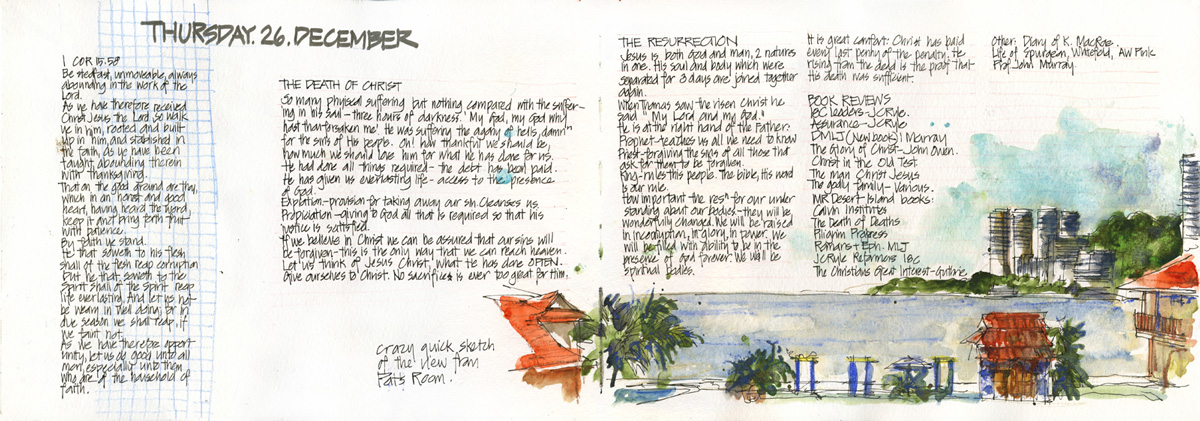 THURSDAY. 26. DECEMBER
1 COR 15.58
Be stedfast, unmoveable, always
abounding in the work of the
Lord.
As we have therefore received
Christ Jesus the Lord so walk
ye in him, rooted and built
up in him, and stablished in
the faith, as ye have been
taught, abounding therein
with thanksgiving.
That on the good ground are they,
which in an honest and good
heart, having heard the word,
keep it and bring forth fruit
with patience.
By faith ye stand.
He that soweth to his flesh
shall of the flesh reap corruption
but he that soweth to the
Spirit shall of the Spirit reap
life everlasting. And let us not
be weary in well doing for in
due season we shall reap, if
we faint not.
As we have therefore opport
unity, let us do good unto all
men, especially unto them
who are of the household of
faith.
THE DEATH OF CHRIST
So many physical suffering but nothing compared with the suffer-
ing in his soul - three hours of darkness. 'My God, my God why
hast thou forsaken me' He was suffering the agony of hells, damn
for the sins of his people. Oh! how thankful we should be,
how much we should love him for what he has done for us.
He had done all things required - the debt has been paid.
He has given us everlasting life - access to the presence
of God.
Expiation - provision for taking away our sin. Cleanses us.
Propitiation - giving to God all that is required so that his
justice is satisfied.
If we believe in Christ we can be assured that our sins will
be forgiven - this is the only way that we can reach heaven.
Let us think of Jesus Christ, what He has done OFTEN.
Give ourselves to Christ. No sacrifice is ever too great for him.
crazy quick sketch
of the view from
Pat's Room.
THE RESURRECTION
Jesus is both God and man, 2 natures
in one. His soul and body which were
separated for 3 days are joined together
again.
When Thomas saw the risen Christ he
said "My Lord and my God."
He is at the right hand of the Father.
Prophet - teaches us all we need to know
Priest - forgiving the sins of all those that
ask for them to be forgiven.
King - rules his people. The bible, His word
is our rule.
How important the resn for our under
standing about our bodies - they will be
wonderfully changed. We will be raised
in incorruption, in glory, in power. We
will be filled with ability to be in the
presence of God forever. We will be
spiritual bodies.
It is great comfort: Christ has paid
every last penny of the penalty. He
rising from the dead is the proof that
His death was sufficient.
BOOK REVIEWS
18C leaders - JC Ryle.
Assurance - JC Ryle
DMLJ (New book) I Murray
The Glory of Christ - John Owen.
Christ in the Old Test
The man Christ Jesus
The godly family - various.
MR Desert Island books:
Calvin Institutes
The Death of Deaths
Pilgrim Progress
Romans + Eph. MLJ
JC Ryle Reformers 18C
The Christians Great Interest - Guthrie
Other: Diary of K. MacRae
Life of Spurgeon, Whitefield, AW Pink
Prof John Murray